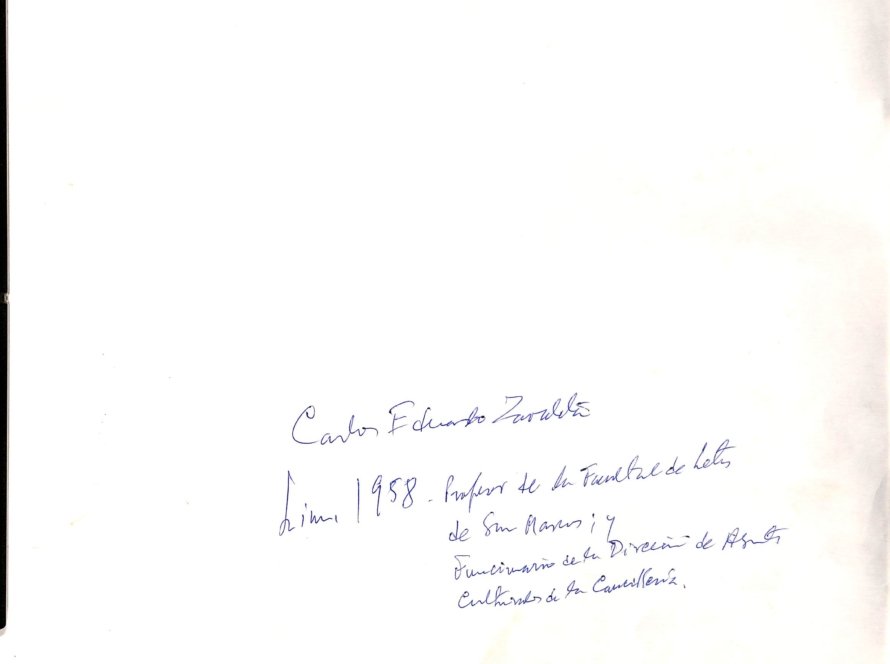 Carlos Eduardo Zavaleta
Lima 1958. Profesor de la Facultad de Letras
de San Marcos; y
Funcionario de la Dirección de Asuntos
Culturales de la Cancillería.